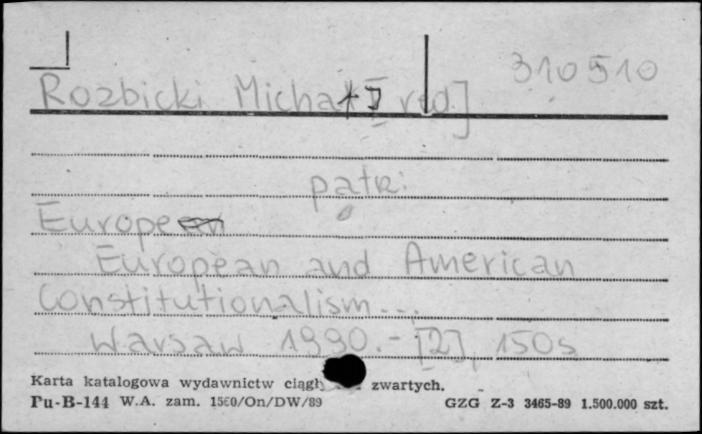 310510
Rozbicki Michał [red.]
patrz:
Europe
European and American
Constitutionalism...
Warsaw 1990. - [2], 150s
Karta katalogowa wydawnictw zwartych.
Pu-B-144 W.A. zam. 1560/On/DW/89 GZG Z-3 3465-89 1.500.000 szt.